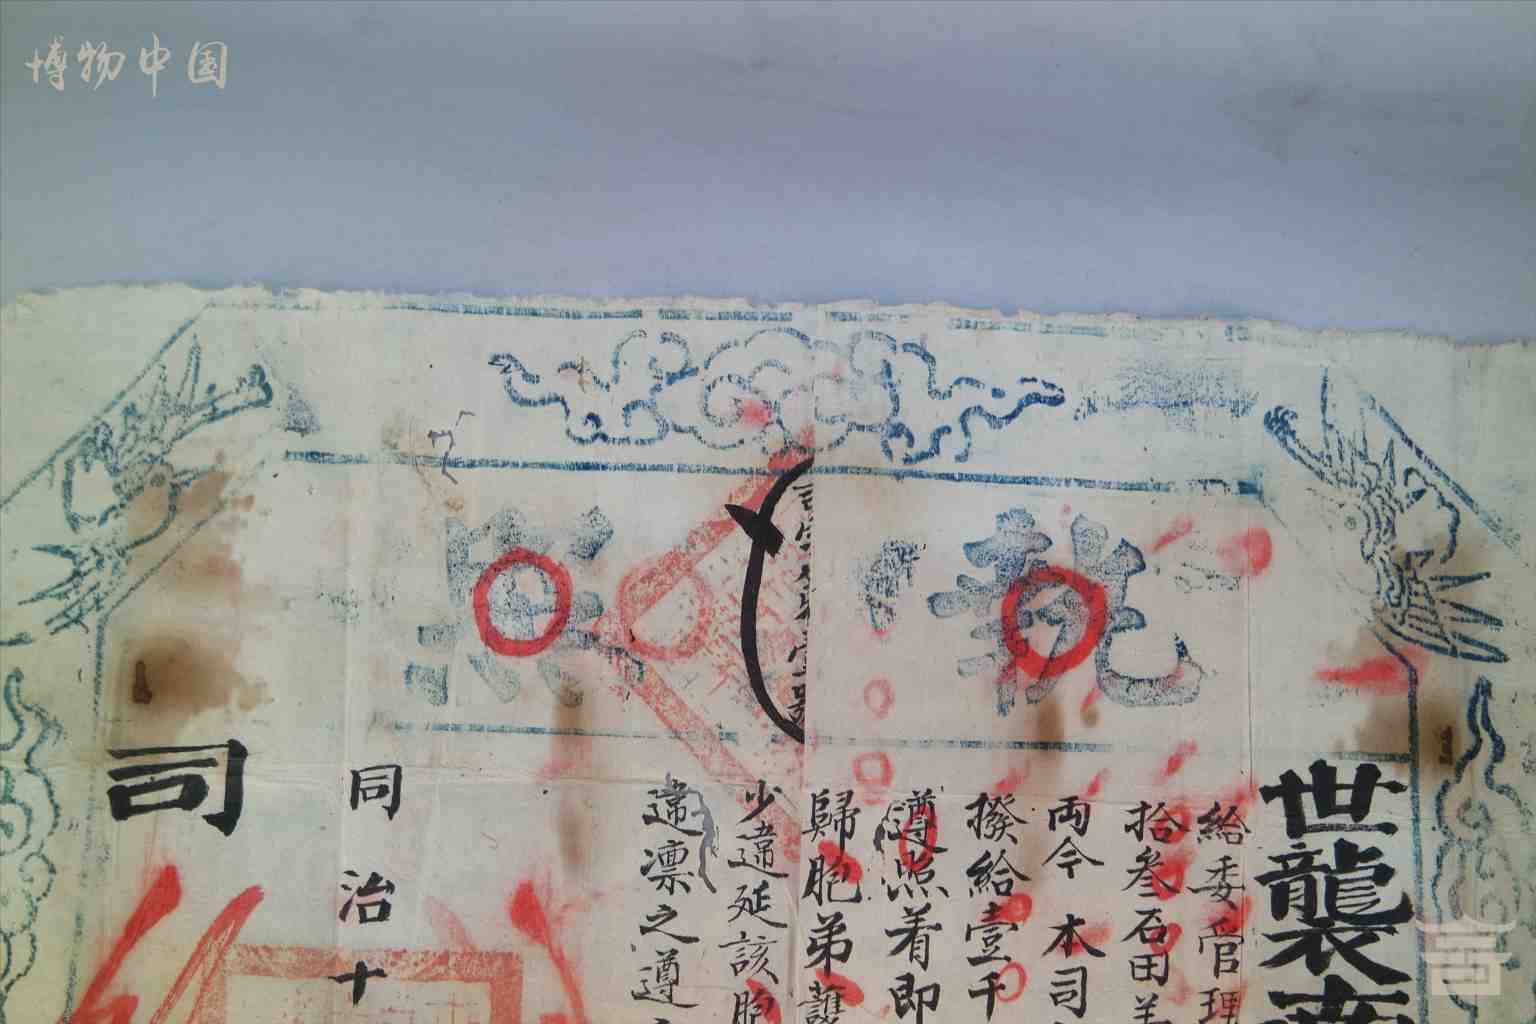 博物中国
執照
世襲
給委管理
拾叁石田
両今本司
撥給壹千
遵照着即
歸胞弟護
少違延該胞
違凛之遵
同治十
司